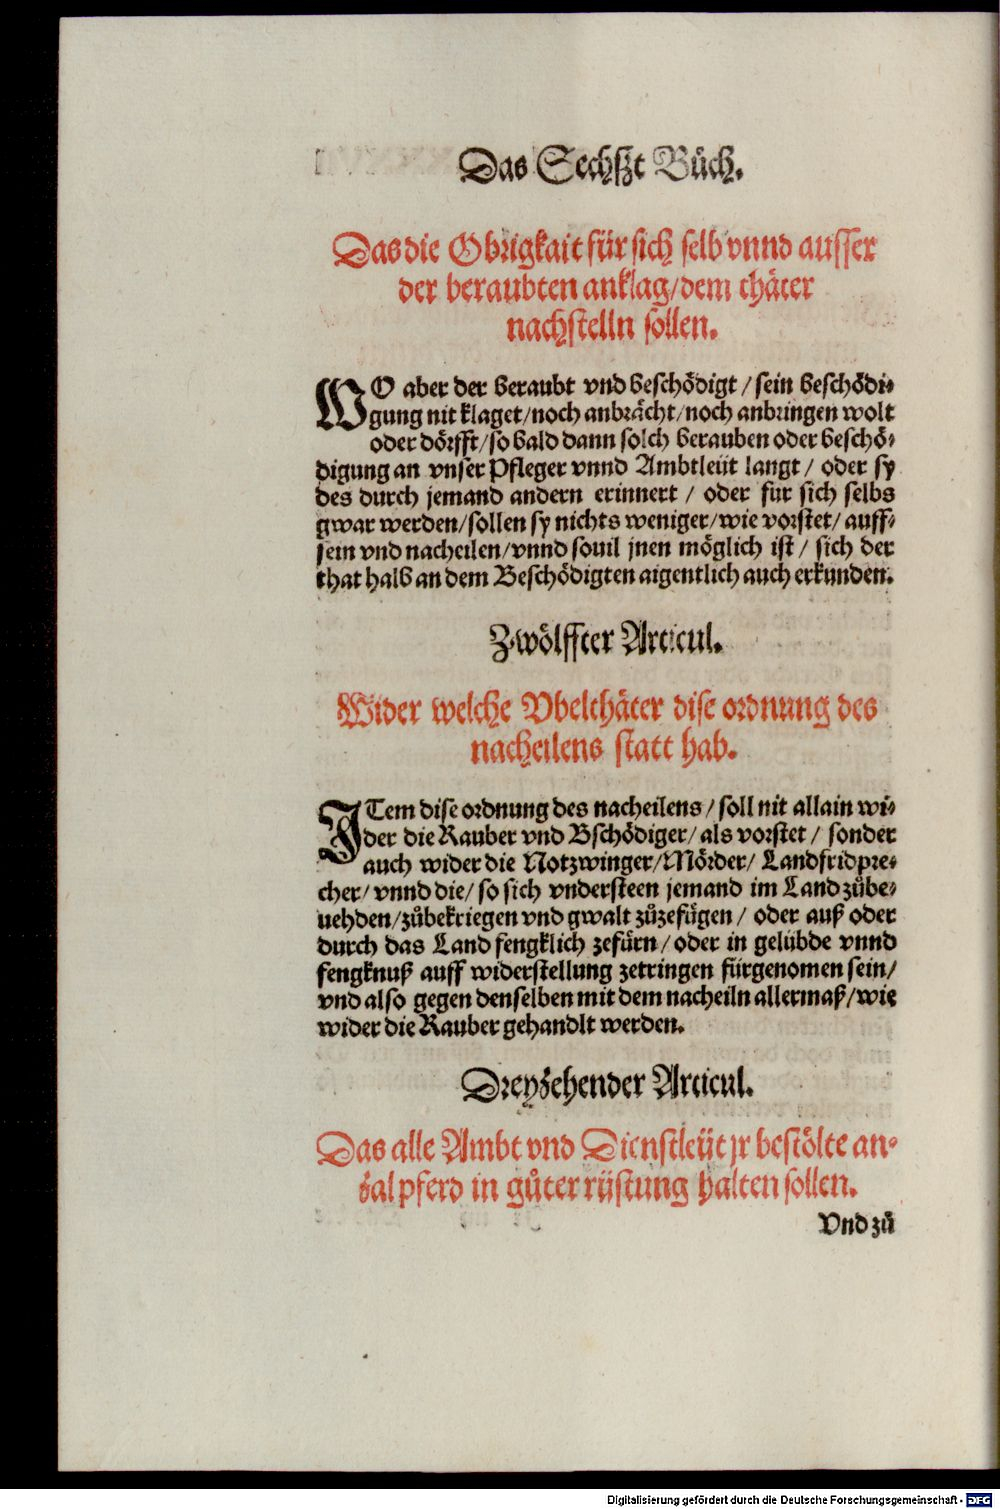 Das Sechßt Bůch.
Das die Obrigkait für sich selb vnnd ausser
der beraubten anklag/dem thäter
nachstelln sollen.
WO aber der beraubt vnd beschödigt / sein beschödi-
gung nit klaget/noch anbrächt/noch anbringen wolt
oder dörfft/so bald dann solch berauben oder beschö-
digung an vnser Pfleger vnnd Ambtleüt langt / oder sy
des durch jemand andern erinnert / oder für sich selbs
gwar werden/sollen sy nichts weniger/wie vorstet/ auff-
sein vnd nacheilen/vnnd souil jnen möglich ist / sich der
that halb an dem Beschödigten aigentlich auch erkunden.
Zwölffter Articul.
Wider welche Vbelthäter dise ordnung des
nacheilens statt hab.
ITem dise ordnung des nacheilens / soll nit allain wi-
der die Rauber vnd Bschödiger/ als vorstet / sonder
auch wider die Notzwinger/Mörder/ Landfridpre-
cher/ vnnd die/ so sich vndersteen jemand im Land zůbe-
uehden/zůbekriegen vnd gwalt zůzefügen / oder auß oder
durch das Land fengklich zefürn/oder in gelübde vnnd
fengknuß auff widerstellung zetringen fürgenomen sein/
vnd also gegen denselben mit dem nacheiln allermaß/wie
wider die Rauber gehandlt werden.
Dreyzehender Articul.
Das alle Ambt vnd Dienstleüt jr bestölte an-
zal pferd in gůter rüstung halten sollen.
Vnd zů
Digitalisierung gefördert durch die Deutsche Forschungsgemeinschaft - DFG